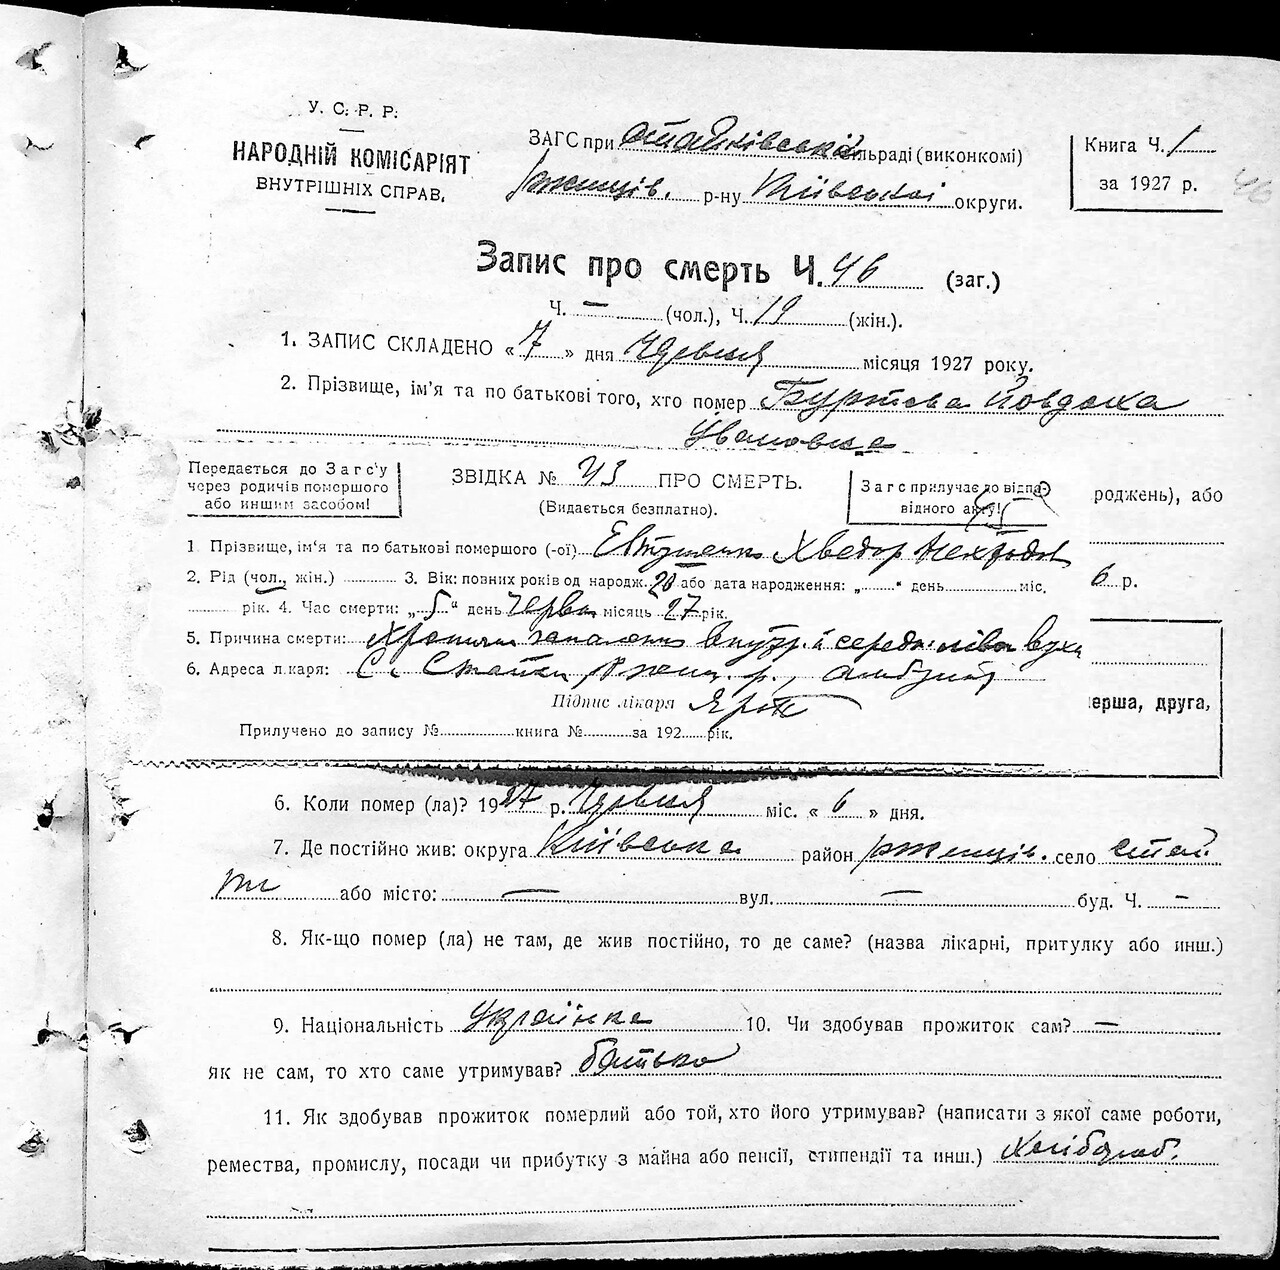 У. С. Р. Р.
НАРОДНІЙ КОМІСАРІЯТ
ВНУТРІШНІХ СПРАВ.
ЗАГС при Стайківській сільраді (виконкомі)
Ржищів. р-ну Київської округи.
Книга Ч. 1
за 1927 р.
46
Запис про смерть Ч. 46 (заг.)
Ч. — (чол.), Ч. 19 (жін.).
1. ЗАПИС СКЛАДЕНО « 7 » дня Червня місяця 1927 року.
2. Прізвище, ім'я та по батькові того, хто помер Буртова Йовдоха
Івановна
Передається до Загс'у
через родичів помершого
або иншим засобом!
ЗВІДКА № 43 ПРО СМЕРТЬ.
(Видається безплатно).
Загс прилучає до відпо-
відного акту!
роджень), або
1. Прізвище, ім'я та по батькові помершого (-ої) Евтушенко Хведор
2. Рід (чол., жін.) 3. Вік: повних років од народж. 20 або дата народження: „ “ день міс.
6 р.
рік. 4. Час смерти: „ 5 “ день Червн місяць 27 рік.
5. Причина смерти: Хронічн запалення внутр. й середн. ліва вуха
6. Адреса лікаря: С. Стайки Ржищ. р.,
Підпис лікаря
ерша, друга,
Прилучено до запису № книга № за 192 рік.
6. Коли помер (ла)? 1927 р. Червня міс. « 6 » дня.
7. Де постійно жив: округа Київська район Ржищів. село Стай
ки або місто: — вул. — буд. Ч. —
8. Як-що помер (ла) не там, де жив постійно, то де саме? (назва лікарні, притулку або инш.)
9. Національність Українка 10. Чи здобував прожиток сам? —
як не сам, то хто саме утримував? батько
11. Як здобував прожиток померлий або той, хто його утримував? (написати з якої саме роботи,
ремества, промислу, посади чи прибутку з майна або пенсії, стипендії та инш.) Хлібороб.